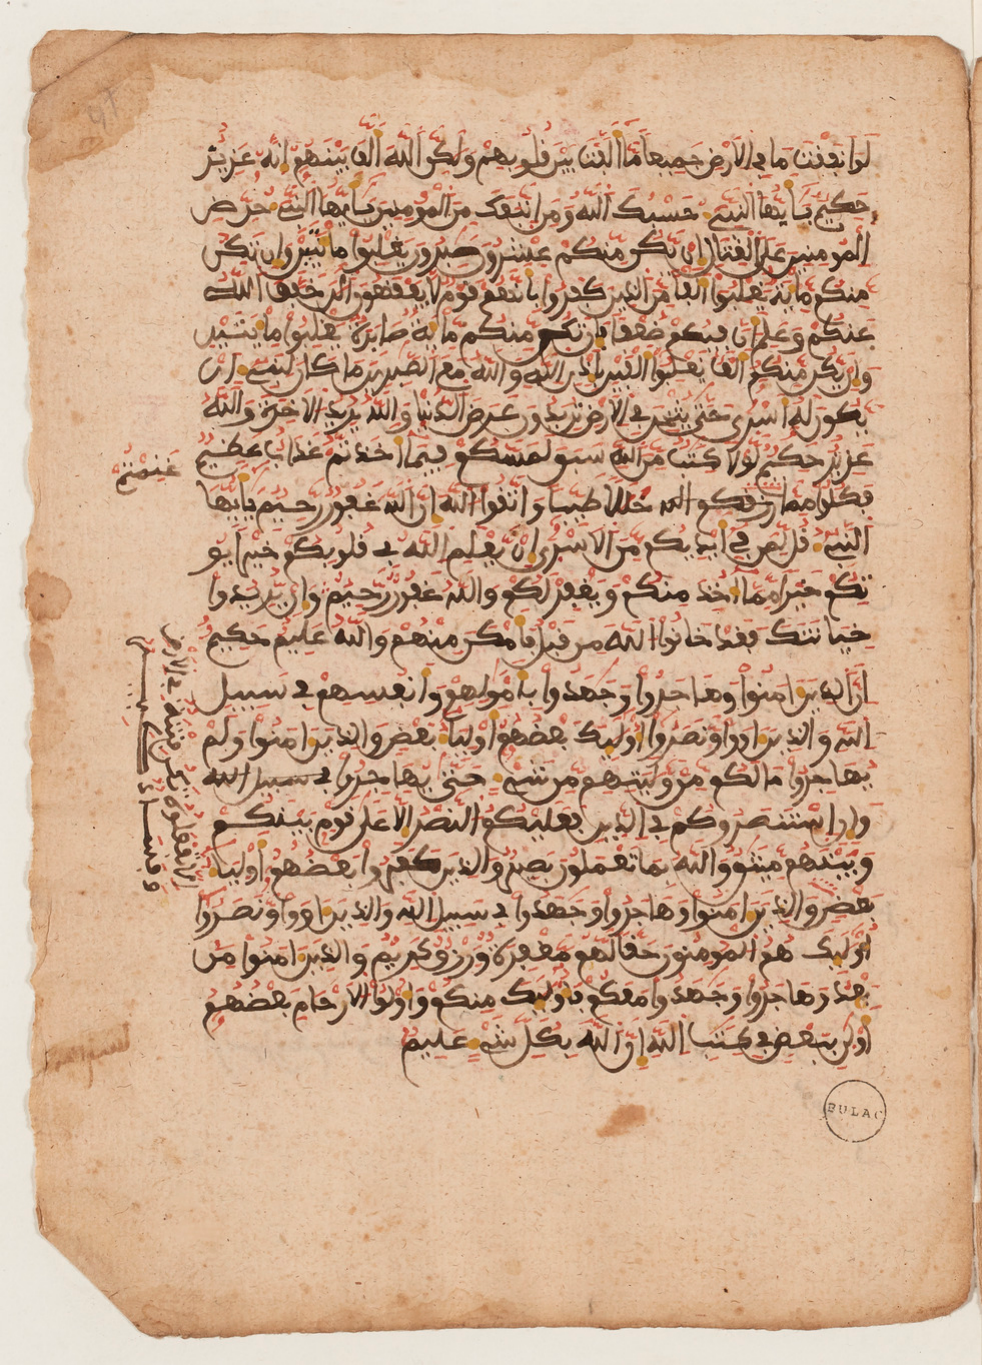 لو انفقت ما في الارض جميعا ما الفت بين قلوبهم ولكن الله الف بينهم انه عزيز
حكيم يايها النبيء حسبك الله ومن اتبعك من المومنين يايها النبيء حرض
المومنين على القتال ان يكن منكم عشرون صبرون يغلبوا مايتين وان تكن
منكم ماية يغلبوا الفا من الذين كفروا بانهم قوم لا يفقهون الن خفف الله
عنكم وعلم ان فيكم ضعفا فان تكن منكم ماية صابرة يغلبوا مايتين
وان يكن منكم الف يغلبوا الفين باذن الله والله مع الصبرين ما كان لنبيء ان
يكون له اسرى حتى يثخن في الارض تريدون عرض الدنيا والله يريد الاخرة والله
عزيز حكيم لولا كتب من الله سبق لمسكم فيما اخذتم عذاب عظيم
غنمتم
فكلوا مما رزقكم الله حللا طيبا واتقوا الله ان الله غفور رحيم يايها
النبيء قل لمن في ايديكم من الاسرى ان يعلم الله في قلوبكم خيرا يو
تكم خيرا مما اخذ منكم ويغفر لكم والله غفور رحيم وان يريدوا
خيانتك فقد خانوا الله من قبل فامكن منهم والله عليم حكيم
ان الذين امنوا وهاجروا وجهدوا باموالهم وانفسهم في سبيل
الله والذين اووا ونصروا اوليك بعضهم اولياء بعض والذين امنوا ولم
يهاجروا ما لكم من وليتهم من شيء حتى يهاجروا في سبيل الله
وان استنصروكم في الدين فعليكم النصر الا على قوم بينكم
وبينهم ميثق والله بما تعملون بصير والذين كفروا بعضهم اولياء
بعض والذين امنوا وهاجروا وجهدوا في سبيل الله والذين اووا ونصروا
اوليك هم المومنون حقا لهم مغفرة ورزق كريم والذين امنوا من
بعد وهاجروا وجهدوا معكم فاوليك منكم واولوا الارحام بعضهم
اولى ببعض في كتب الله ان الله بكل شيء عليم
الا تفعلوه تكن فتنة في الارض
وفساد كبير
BULAC